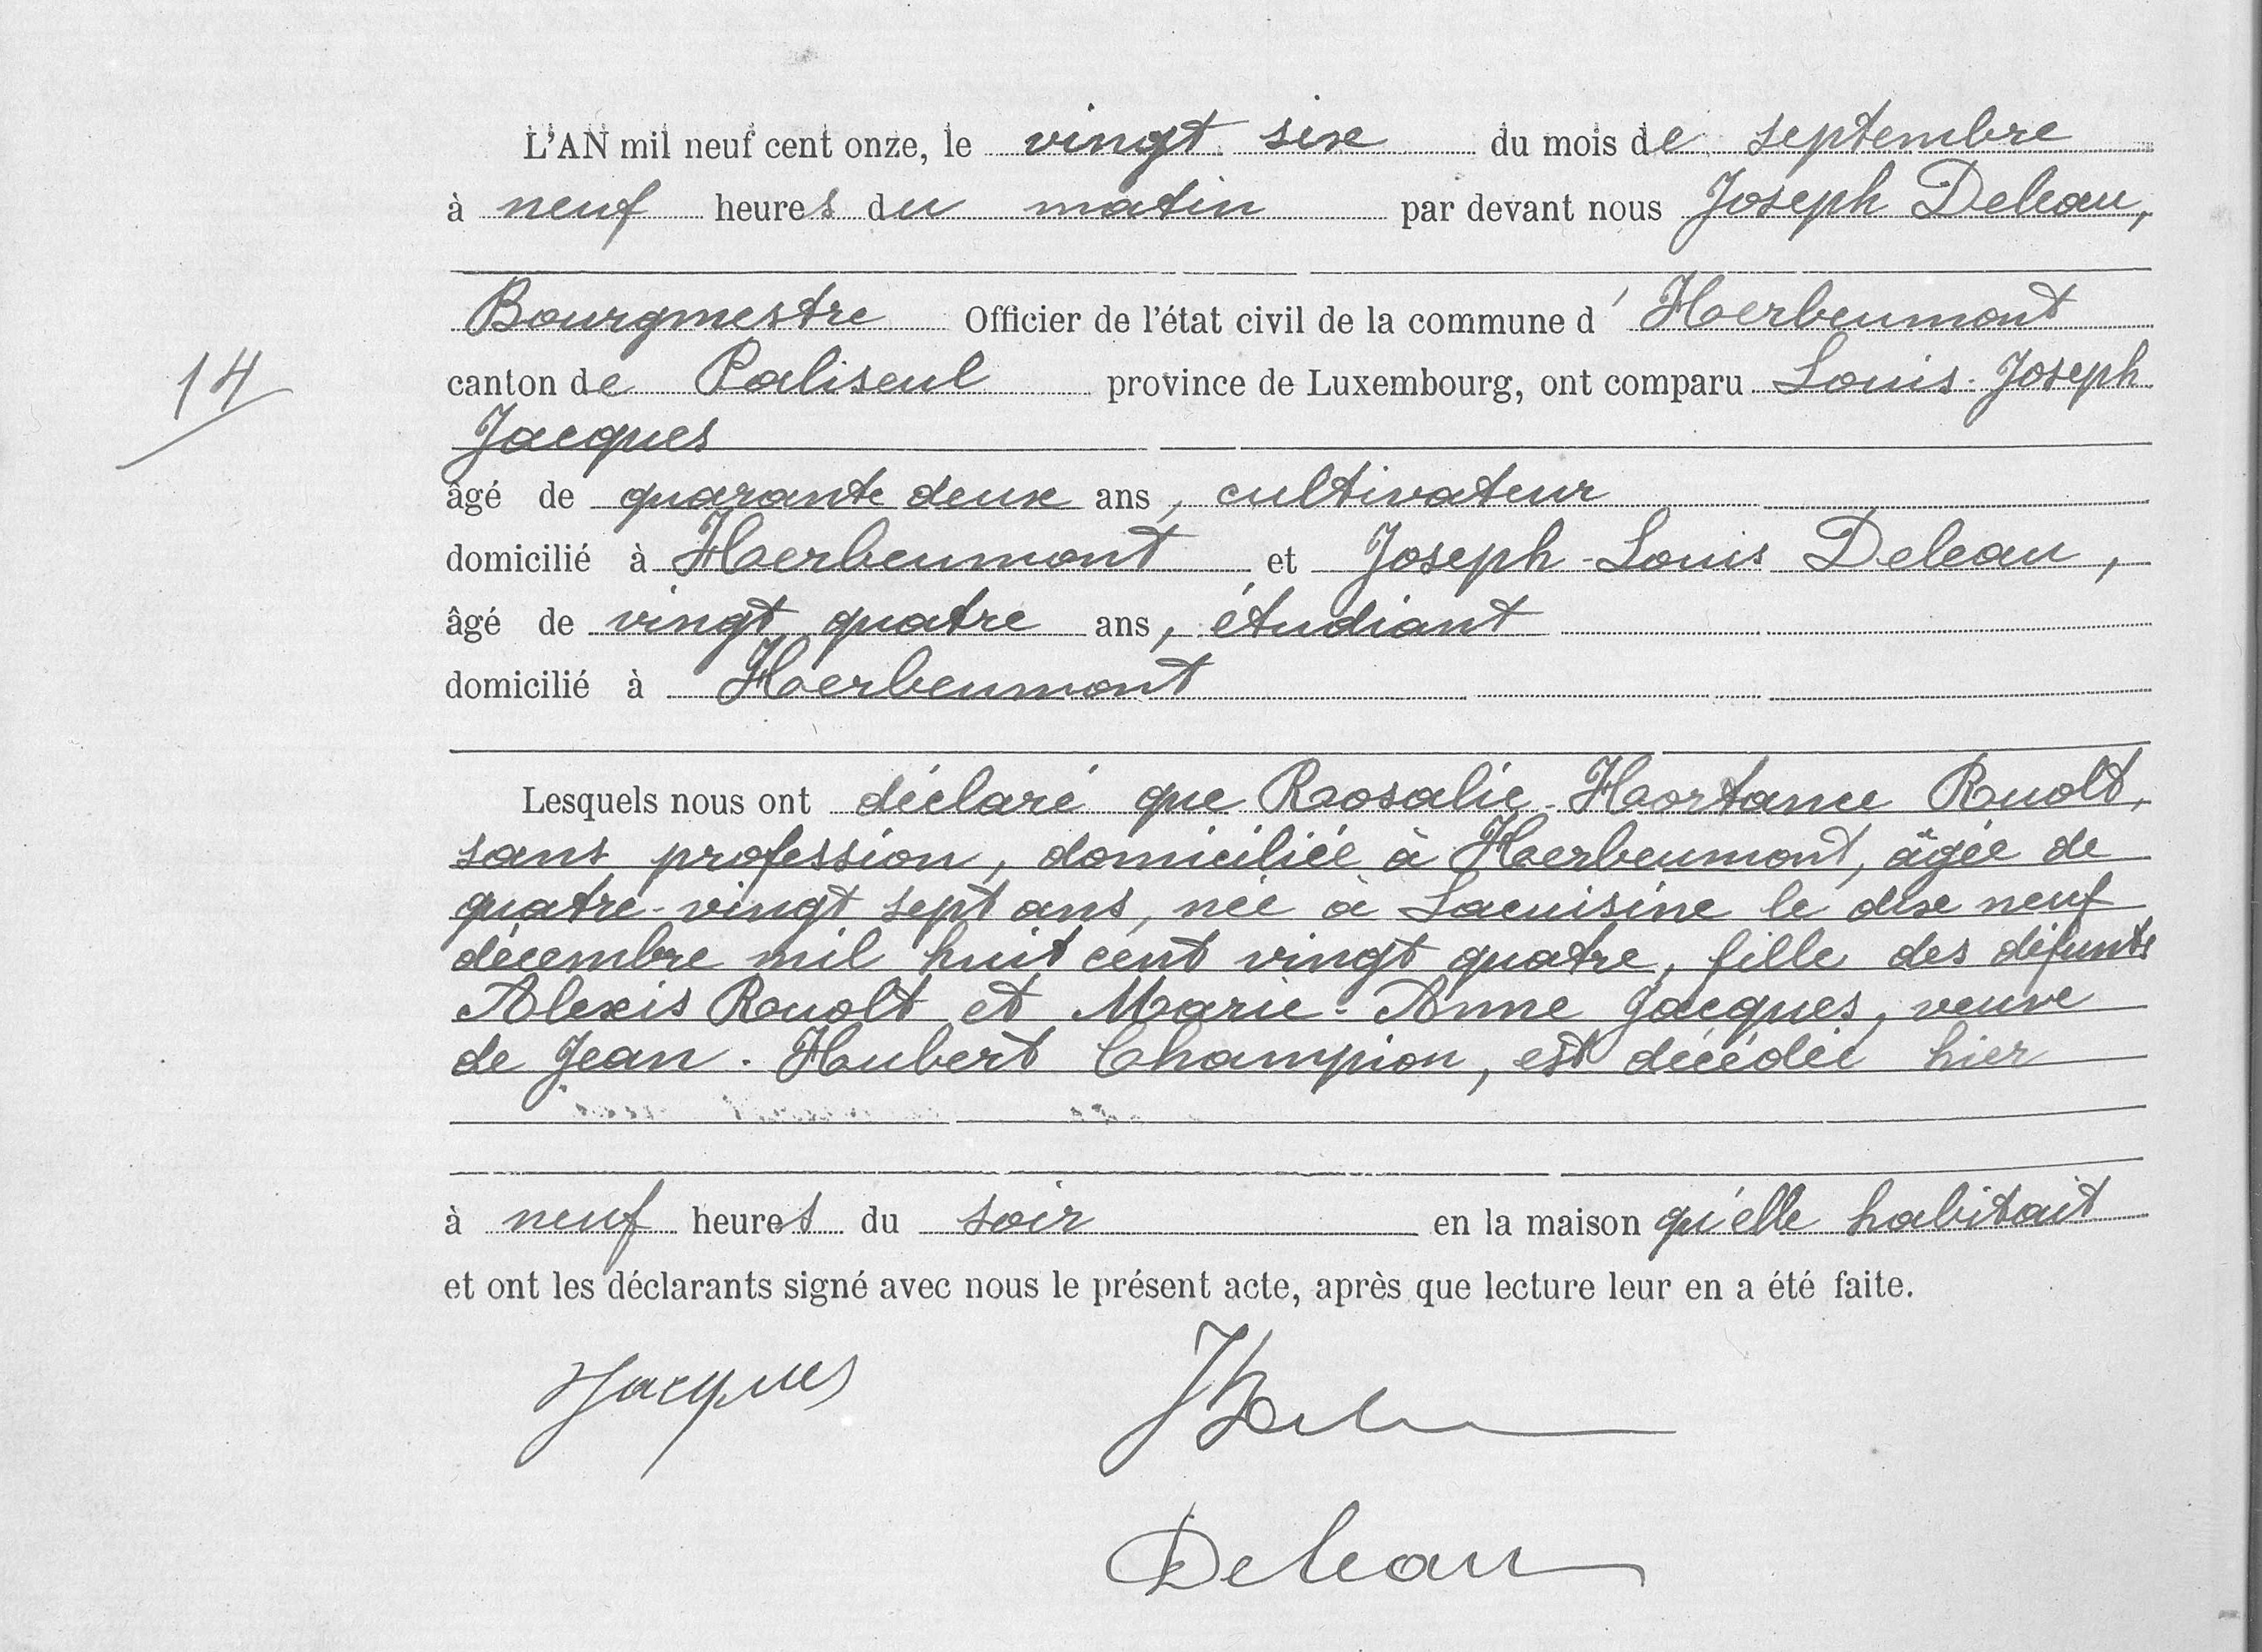 L'AN mil neuf cent onze, le vingt six du mois de septembre
à neuf heures du matin par devant nous Joseph Deleau,
Bourgmestre Officier de l'état civil de la commune d' Herbeumont
14
canton de Paliseul province de Luxembourg, ont comparu Louis-Joseph
Jacques
âgé de quarante deux ans, cultivateur
domicilié à Herbeumont et Joseph-Louis Deleau,
âgé de vingt quatre ans, étudiant
domicilié à Herbeumont
Lesquels nous ont déclaré que Rosalie-Hortance Ruolt,
sans profession, domiciliée à Herbeumont, âgée de
quatre-vingt sept ans, née à Lacuisine le dix neuf
décembre mil huit cent vingt quatre, fille des défunts
Alexis Ruolt et Marie-Anne Jacques, veuve
de Jean-Hubert Champion, est décédée hier
à neuf heures du soir en la maison qu'elle habitait
et ont les déclarants signé avec nous le présent acte, après que lecture leur en a été faite.
Jacques
Deleau